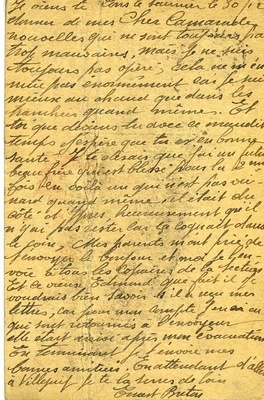 Je viens te
donner de mes Cher Camarade
nouvelles qui ne sont toujours pas
trop mauvaises, mais je ne suis
toujours pas opéré, cela ne m'en
nuie pas énormément car je suis
mieux au chaud que dans les
tranchées quand même. Et
toi que deviens tu avec ce maudit
temps j'espère que tu es en bonne
santé. Je te dirais que j'ai un futur
beau frère qui est blessé pour la 2 eme
fois en voilà un qui n'est pas vei
nard quand même il était du
côté d'Ypres, heureusement qu'il
n'y a pas resté car la cognait dans
le coin. Mes parents m'ont prié de
t'envoyer le bonjour et moi je l'en
voie à tous les copains de la section
Et ce vieux Edmond que fait il je
voudrais bien savoir s'il a reçu mes
lettres, car pour mon compte j'en ai eu
qui sont retournées à l'envoyeur
elle était laissée après mon évacuation
En terminant je t'envoie mes
bonnes amitiés. En attendant d'aller
à Villejuif je te la serre de loin